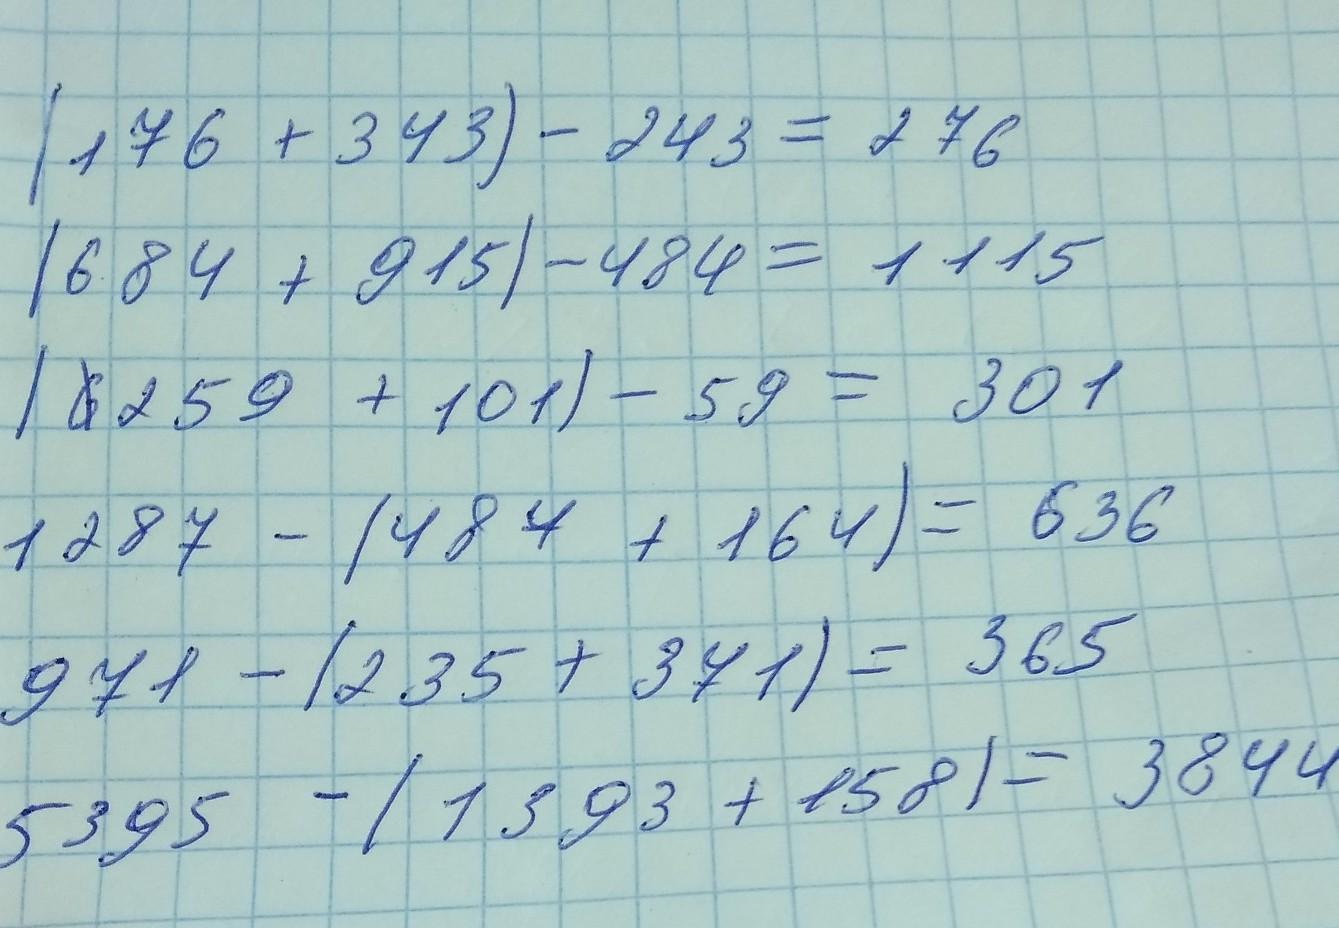 (176 + 343) - 243 = 276
(684 + 915) - 484 = 1115
(259 + 101) - 59 = 301
1287 - (484 + 164) = 636
971 - (235 + 371) = 365
5395 - (1393 + 158) = 3844